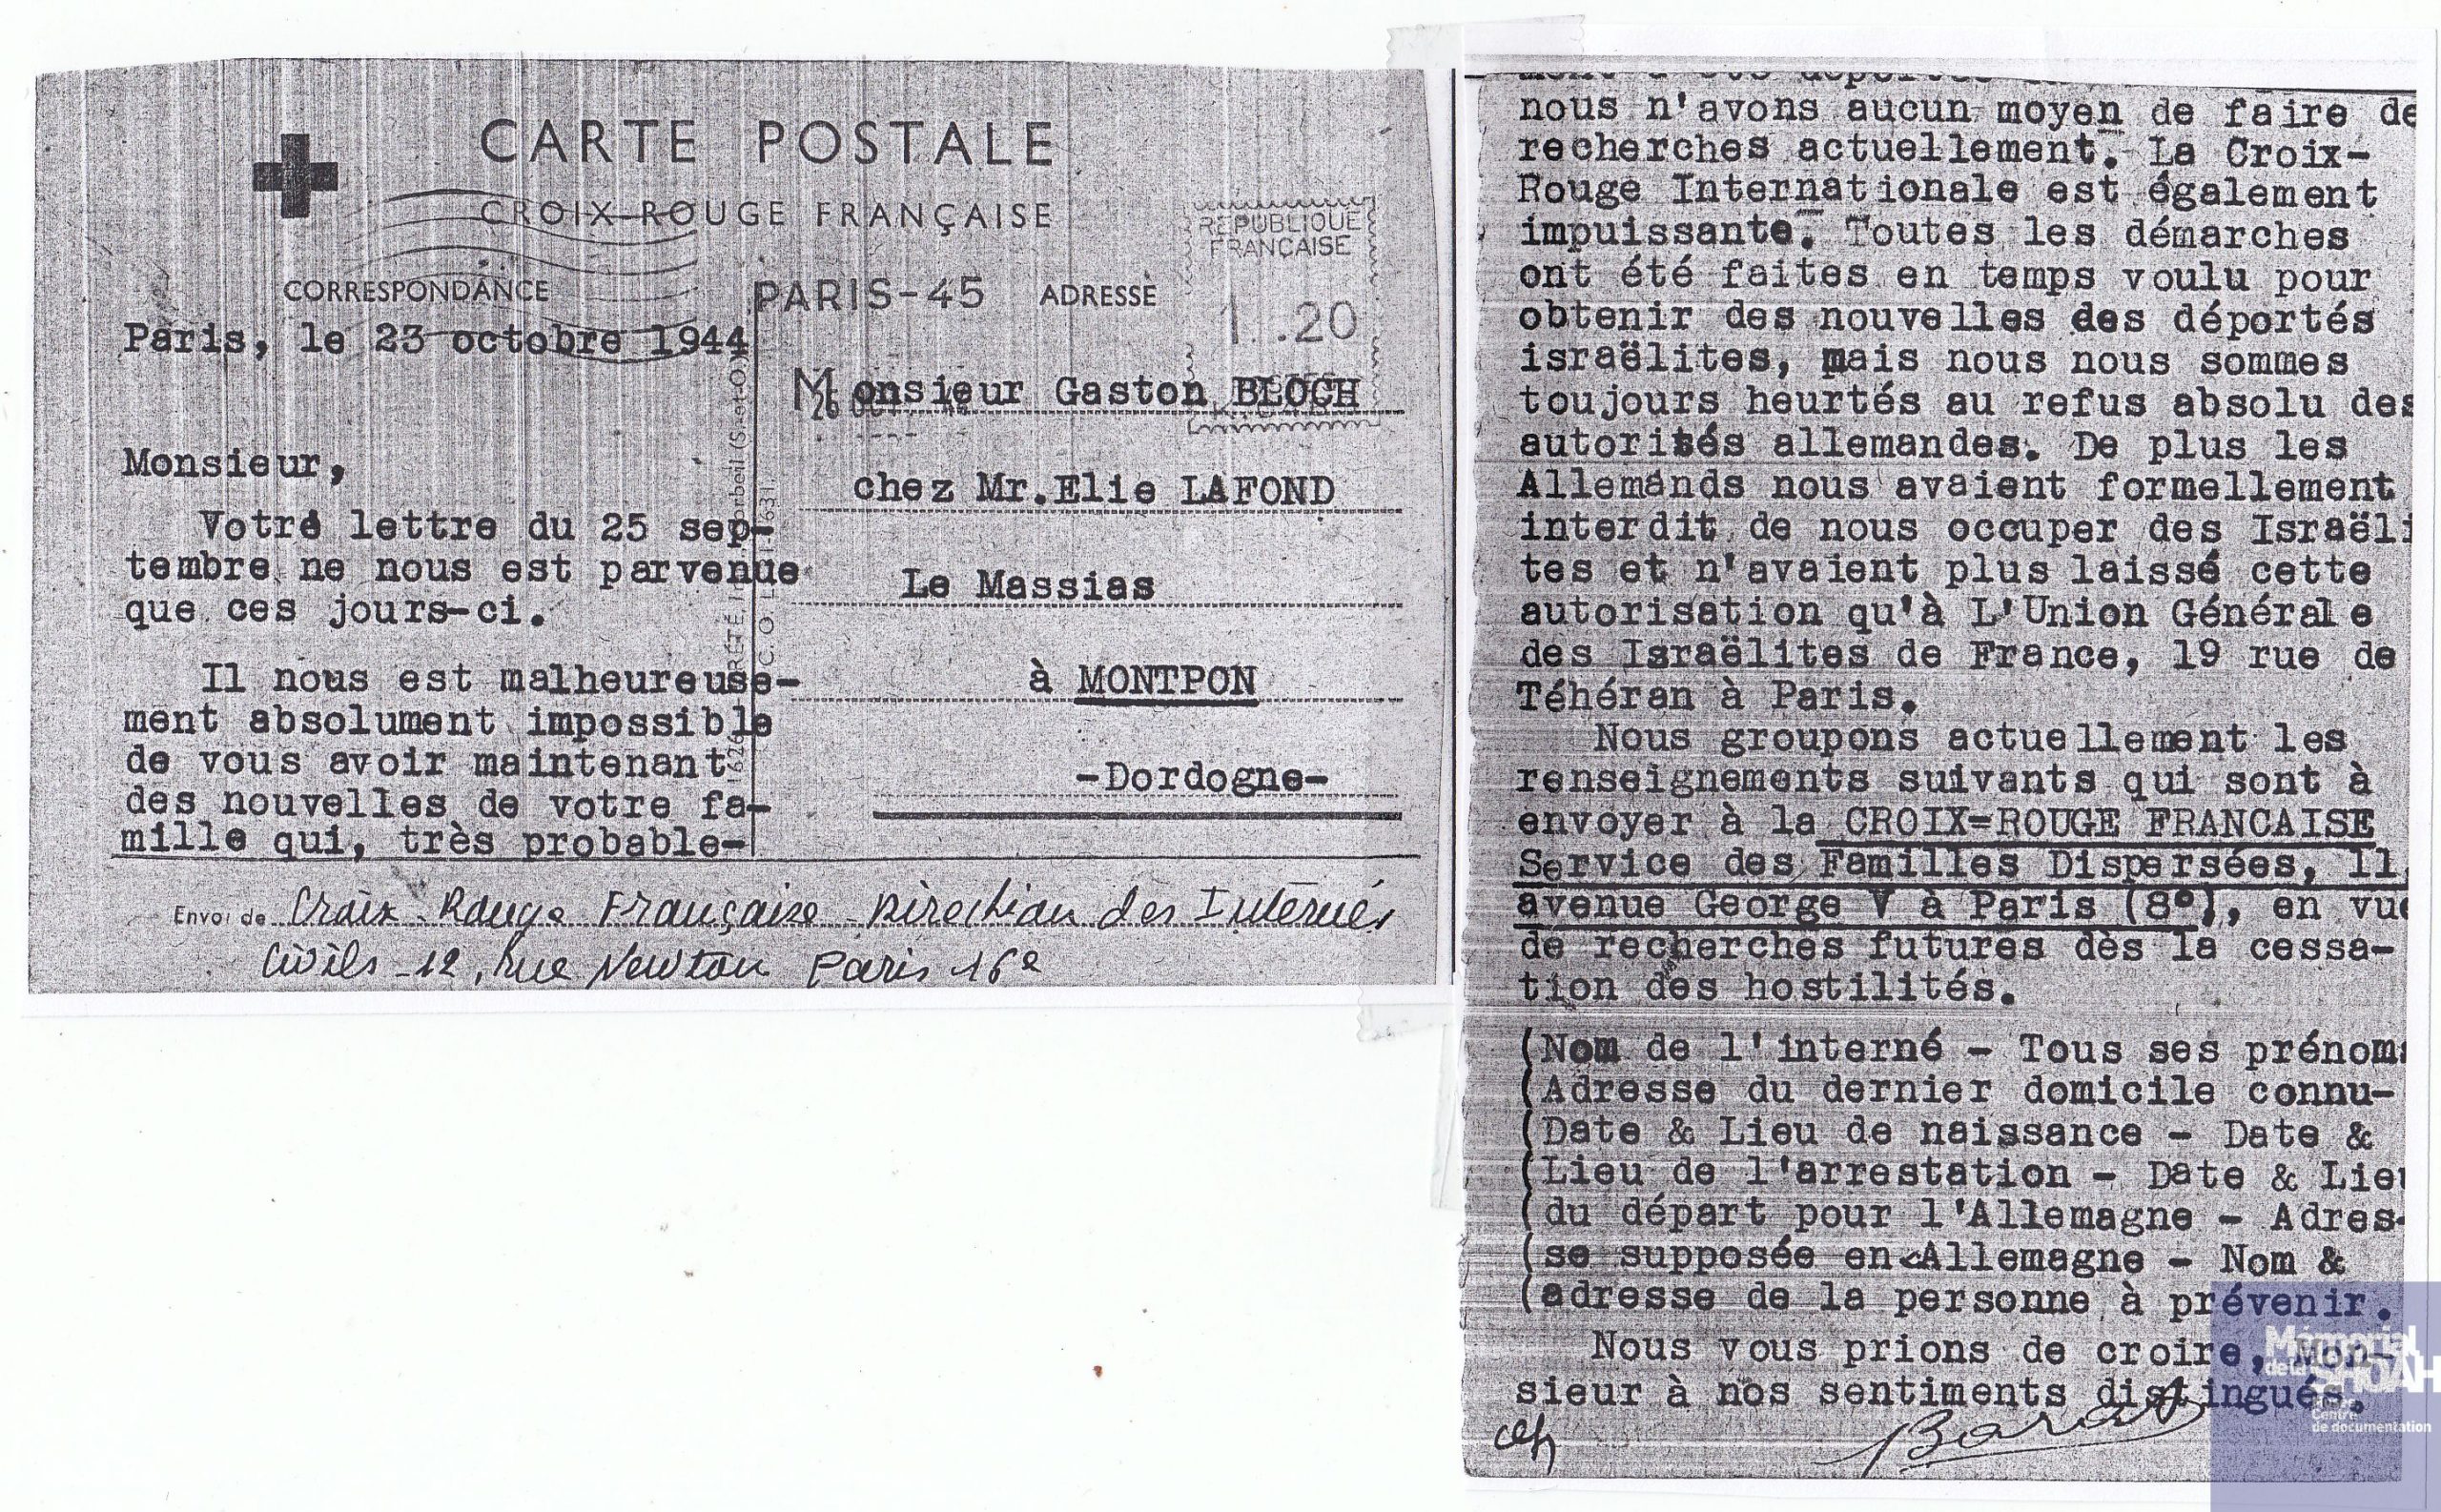 CARTE POSTALE
CROIX-ROUGE FRANÇAISE
CORRESPONDANCE
PARIS-45
ADRESSE
REPUBLIQUE
FRANÇAISE
1.20
Paris, le 23 octobre 1944
Monsieur,
Votre lettre du 25 sep-
tembre ne nous est parvenue
que ces jours-ci.
Il nous est malheureuse-
ment absolument impossible
de vous avoir maintenant
des nouvelles de votre fa-
mille qui, très probable-
Monsieur Gaston BLOCH
chez Mr.Elie LAFOND
Le Massias
à MONTPON
-Dordogne-
Envoi de Croix-Rouge Française Direction des Internés
Civils - 12, rue Newton Paris 16e
ment a été
nous n'avons aucun moyen de faire de
recherches actuellement. La Croix-
Rouge Internationale est également
impuissante. Toutes les démarches
ont été faites en temps voulu pour
obtenir des nouvelles des déportés
israëlites, mais nous nous sommes
toujours heurtés au refus absolu des
autorités allemandes. De plus les
Allemands nous avaient formellement
interdit de nous occuper des Israëli
tes et n'avaient plus laissé cette
autorisation qu'à L'Union Générale
des Israëlites de France, 19 rue de
Téhéran à Paris.
Nous groupons actuellement les
renseignements suivants qui sont à
envoyer à la CROIX=ROUGE FRANCAISE
Service des Familles Dispersées, 11,
avenue George V à Paris (8°), en vue
de recherches futures dès la cessa-
tion des hostilités.
(Nom de l'interné - Tous ses prénoms
(Adresse du dernier domicile connu-
(Date & Lieu de naissance - Date &
(Lieu de l'arrestation - Date & Lieu
(du départ pour l'Allemagne - Adres-
(se supposée en Allemagne - Nom &
(adresse de la personne à prévenir.
Nous vous prions de croire, Mon-
sieur à nos sentiments distingués.
Mémorial
de la SHOAH
Centre
de documentation